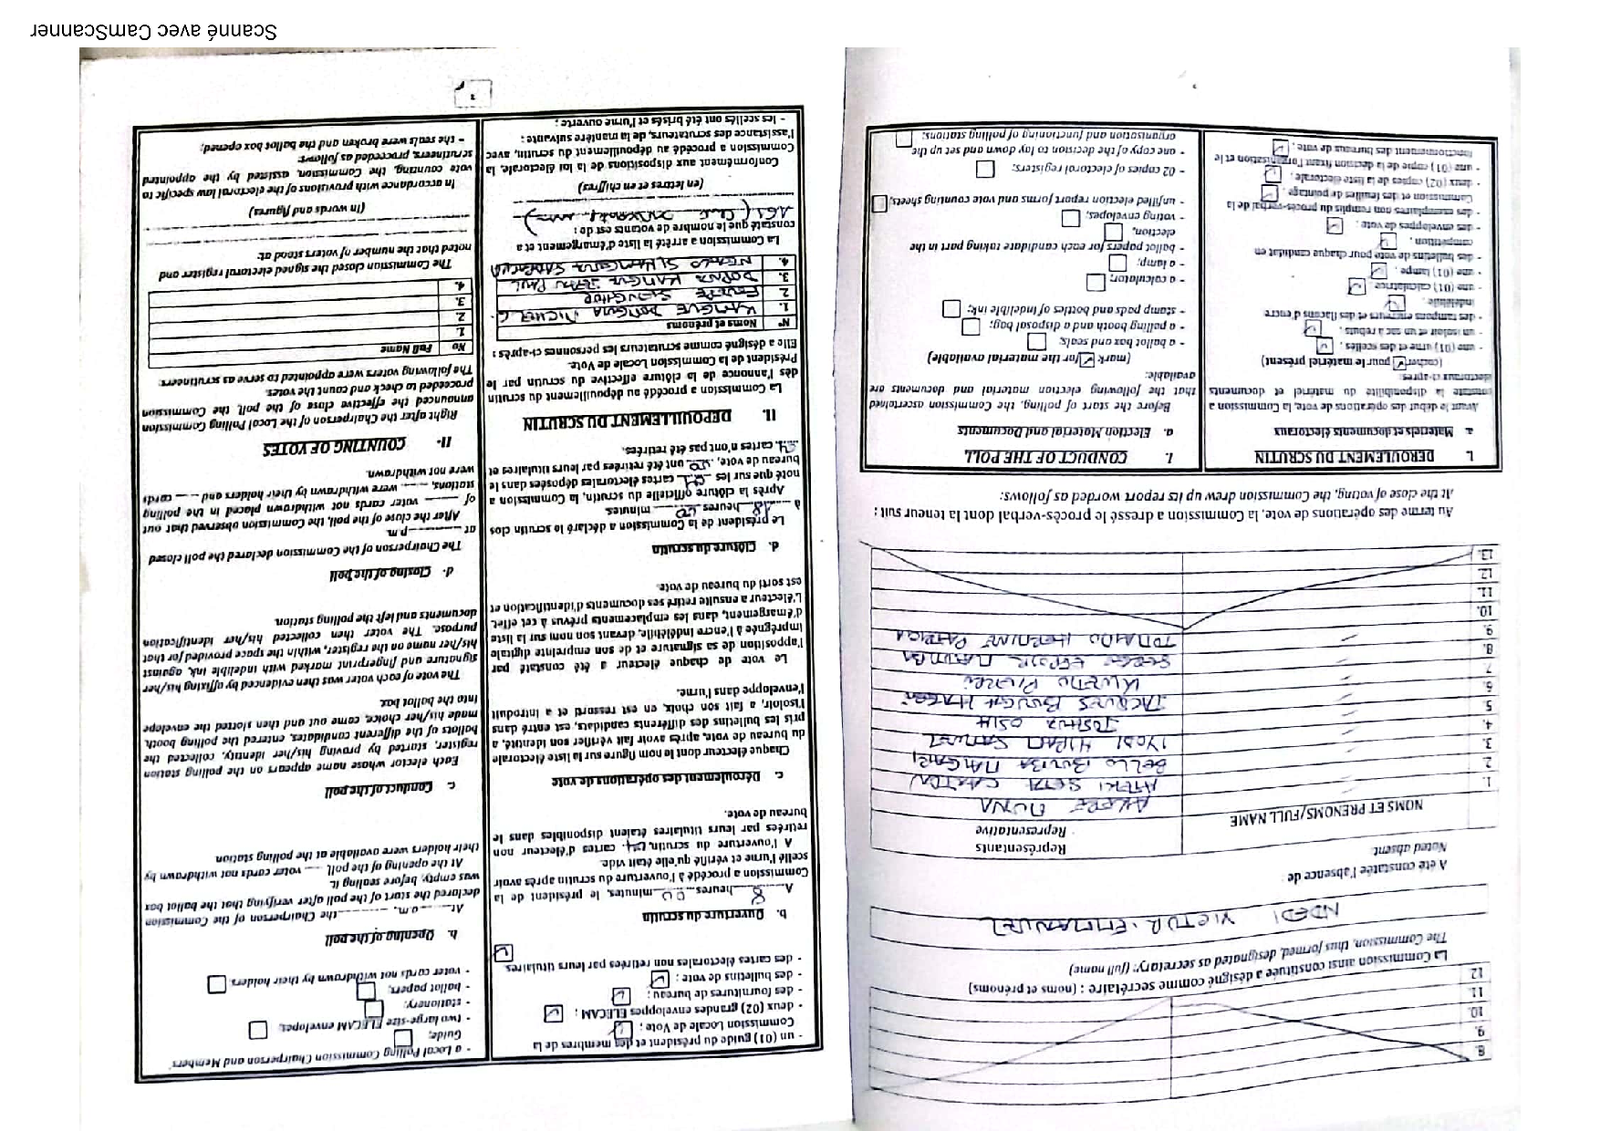 8.
9.
10.
11.
12
La Commission ainsi constituée a désigné comme secrétaire : (noms et prénoms)
The Commission, thus formed, designated as secretary: (full name)
NDEDI VICTOR EMMANUEL
A été constatée l'absence de :
Noted absent:
NOMS ET PRENOMS/FULL NAME
Représentants
Representative
AKERE MUNA
1.
2.
BELLO BOUBA MAIGARI
3.
4.
JOSHUA OSIH
5.
JACQUES BOUGHA HAGBE
6.
7
8.
9.
TOMAINO HERMINE PATRICIA
10.
11.
12.
13.
Au terme des opérations de vote, la Commission a dressé le procès-verbal dont la teneur suit :
At the close of voting, the Commission drew up its report worded as follows:
I. DEROULEMENT DU SCRUTIN
a. Matériels et documents électoraux
Avant le début des opérations de vote, la Commission a
constaté la disponibilité du matériel et documents
électoraux ci-après:
(cocher ✓ pour le matériel présent)
- une (01) urne et des scellés ;
- un isoloir et un sac à rebuts ;
- des tampons encreurs et des flacons d'encre
indélébile ;
- une (01) calculatrice ;
- une (01) lampe ;
- des bulletins de vote pour chaque candidat en
compétition ;
- des enveloppes de vote ;
- des exemplaires non remplis du procès-verbal de la
Commission et des feuilles de pointage ;
- deux (02) copies de la liste électorale ;
- une (01) copie de la décision fixant l'organisation et le
fonctionnement des bureaux de vote ;
I. CONDUCT OF THE POLL
a. Election Material and Documents
Before the start of polling, the Commission ascertained
that the following election material and documents are
available:
(mark ✓ for the material available)
- a ballot box and seals;
- a polling booth and a disposal bag;
- stamp pads and bottles of indelible ink;
- a calculator;
- a lamp;
- ballot papers for each candidate taking part in the
election,
- voting envelopes;
- unfilled election report forms and vote counting sheets;
- 02 copies of electoral registers;
- one copy of the decision to lay down and set up the
organisation and functioning of polling stations;
- un (01) guide du président et des membres de la
Commission Locale de Vote ;
- deux (02) grandes enveloppes ELECAM ;
- des fournitures de bureau ;
- des bulletins de vote ;
- des cartes électorales non retirées par leurs titulaires
b. Ouverture du scrutin
A 8 heures 00 minutes, le président de la
Commission a procédé à l'ouverture du scrutin après avoir
scellé l'urne et vérifié qu'elle était vide.
A l'ouverture du scrutin, cartes d'électeur non
retirées par leurs titulaires étaient disponibles dans le
bureau de vote.
c. Déroulement des opérations de vote
Chaque électeur dont le nom figure sur la liste électorale
du bureau de vote, après avoir fait vérifier son identité, a
pris les bulletins des différents candidats, est entré dans
l'isoloir, a fait son choix, en est ressorti et a introduit
l'enveloppe dans l'urne.
Le vote de chaque électeur a été constaté par
l'apposition de sa signature et de son empreinte digitale
imprégnée à l'encre indélébile, devant son nom sur la liste
d'émargement, dans les emplacements prévus à cet effet.
L'électeur a ensuite retiré ses documents d'identification et
est sorti du bureau de vote.
d. Clôture du scrutin
Le président de la Commission a déclaré le scrutin clos
à 18 heures 00 minutes.
Après la clôture officielle du scrutin, la Commission a
noté que sur les cartes électorales déposées dans le
bureau de vote, 00 ont été retirées par leurs titulaires et
cartes n'ont pas été retirées.
II. DEPOUILLEMENT DU SCRUTIN
La Commission a procédé au dépouillement du scrutin
dès l'annonce de la clôture effective du scrutin par le
Président de la Commission Locale de Vote.
Elle a désigné comme scrutateurs les personnes ci-après :
N° Noms et prénoms
1. KAMGUE DONGUA MICHEL C.
2
3. KAMGUA JEAN PAUL
4.
La Commission a arrêté la liste d'émargement et a
constaté que le nombre de votants est de :
161 (cent soixante un)
(en lettres et en chiffres)
Conformément aux dispositions de la loi électorale, la
Commission a procédé au dépouillement du scrutin, avec
l'assistance des scrutateurs, de la manière suivante :
- les scellés ont été brisés et l'urne ouverte ;
- a Local Polling Commission Chairperson and Members'
Guide;
- two large-size ELECAM envelopes;
- stationery;
- ballot papers;
- voter cards not withdrawn by their holders
b. Opening of the poll
At a.m, the Chairperson of the Commission
declared the start of the poll after verifying that the ballot box
was empty, before sealing it.
At the opening of the poll, voter cards not withdrawn by
their holders were available at the polling station
c. Conduct of the poll
Each elector whose name appears on the polling station
register, started by proving his/her identity, collected the
ballots of the different candidates, entered the polling booth,
made his/her choice, came out and then slotted the envelope
into the ballot box.
The vote of each voter was then evidenced by affixing his/her
signature and fingerprint marked with indelible ink, against
his/her name on the register, within the space provided for that
purpose. The voter then collected his/her identification
documents and left the polling station.
d. Closing of the poll
The Chairperson of the Commission declared the poll closed
at p.m
After the close of the poll, the Commission observed that out
of voter cards not withdrawn placed in the polling
stations, were withdrawn by their holders and cards
were not withdrawn.
II- COUNTING OF VOTES
Right after the Chairperson of the Local Polling Commission
announced the effective close of the poll, the Commission
proceeded to check and count the votes.
The following voters were appointed to serve as scrutineers:
No Full Name
1.
2.
3.
4.
The Commission closed the signed electoral register and
noted that the number of voters stood at:
(in words and figures)
In accordance with provisions of the electoral law specific to
vote counting, the Commission, assisted by the appointed
scrutineers, proceeded as follows:
- the seals were broken and the ballot box opened;
Scanné avec CamScanner